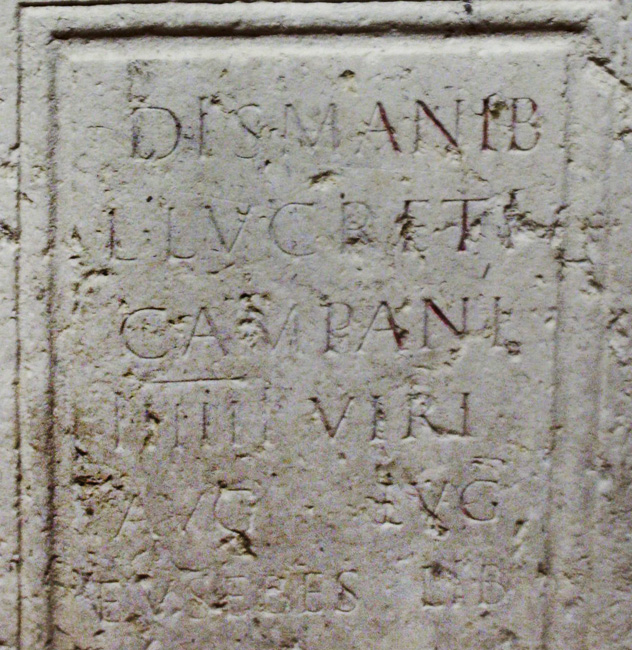 DIS MANIB
L LVCRETI
CAMPANI
IIIIII VIRI
AVG LVG
EVSEBES LIB